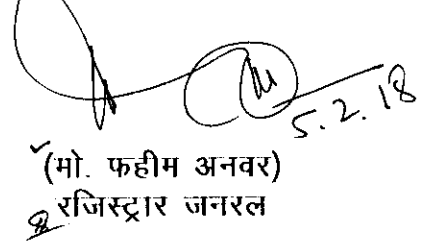 5.2.18
(मो. फहीम अनवर)
रजिस्ट्रार जनरल